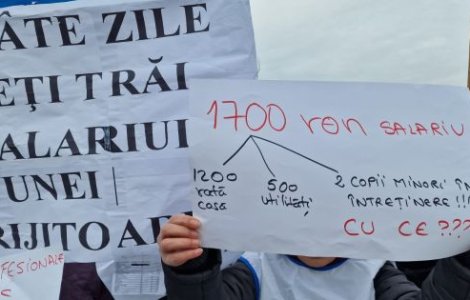 ÂTE ZILE
EȚI TRĂI
SALARIUL
UNEI
RIJITOARE
FESIONALE
1700 ron SALARIU
1200
rată
casă
500
utilități
2 COPII MINORI ÎN
ÎNTREȚINERE !!!
CU CE ???